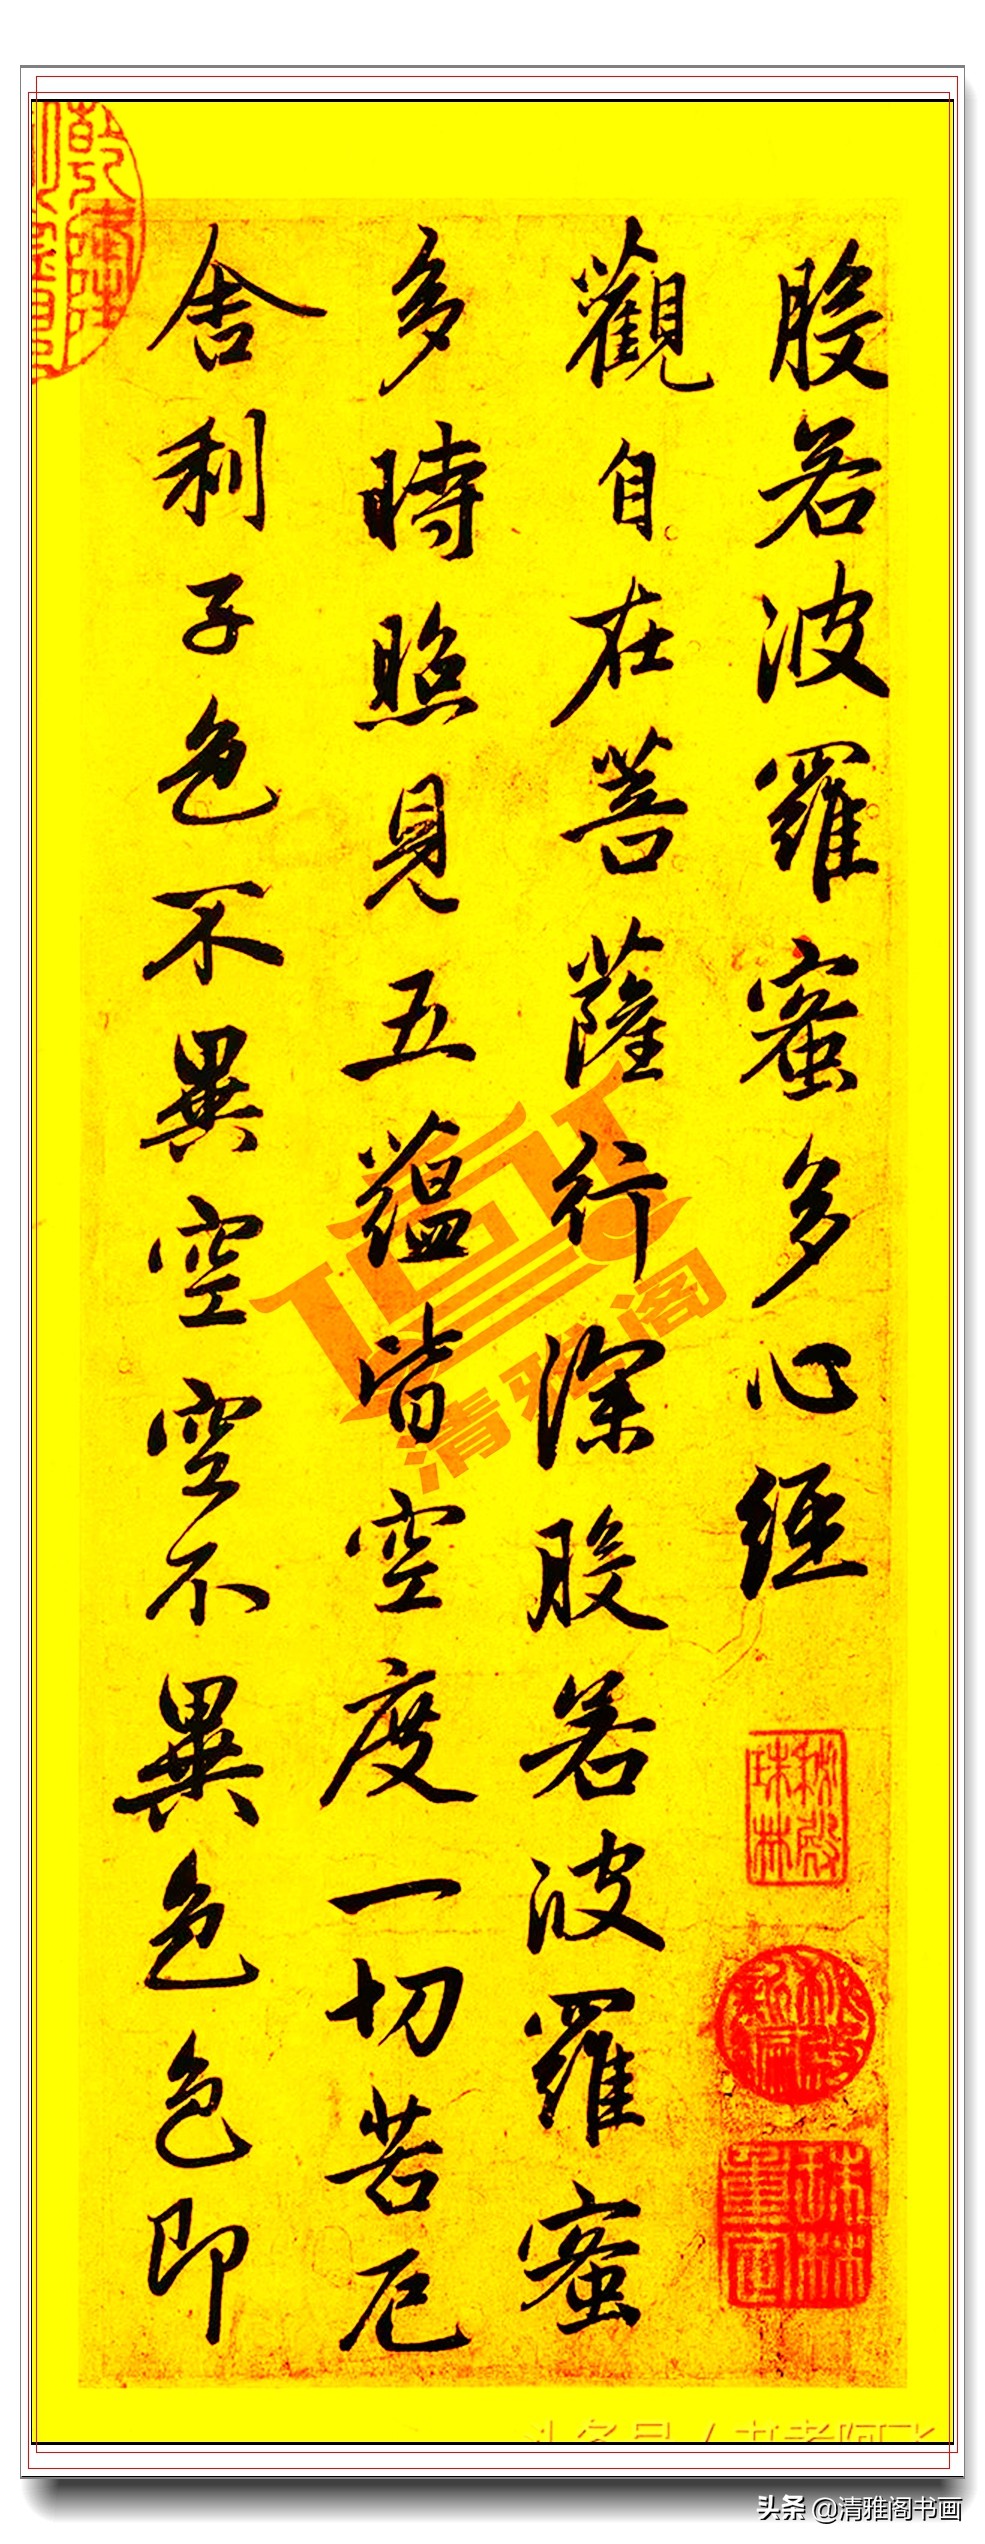 般若波羅蜜多心經
觀自在菩薩行深般若波羅蜜
多時照見五蘊皆空度一切苦厄
舍利子色不異空空不異色色即
秘殿珠林
秘殿新編
珠林重定
清雅阁
头条 @清雅阁书画